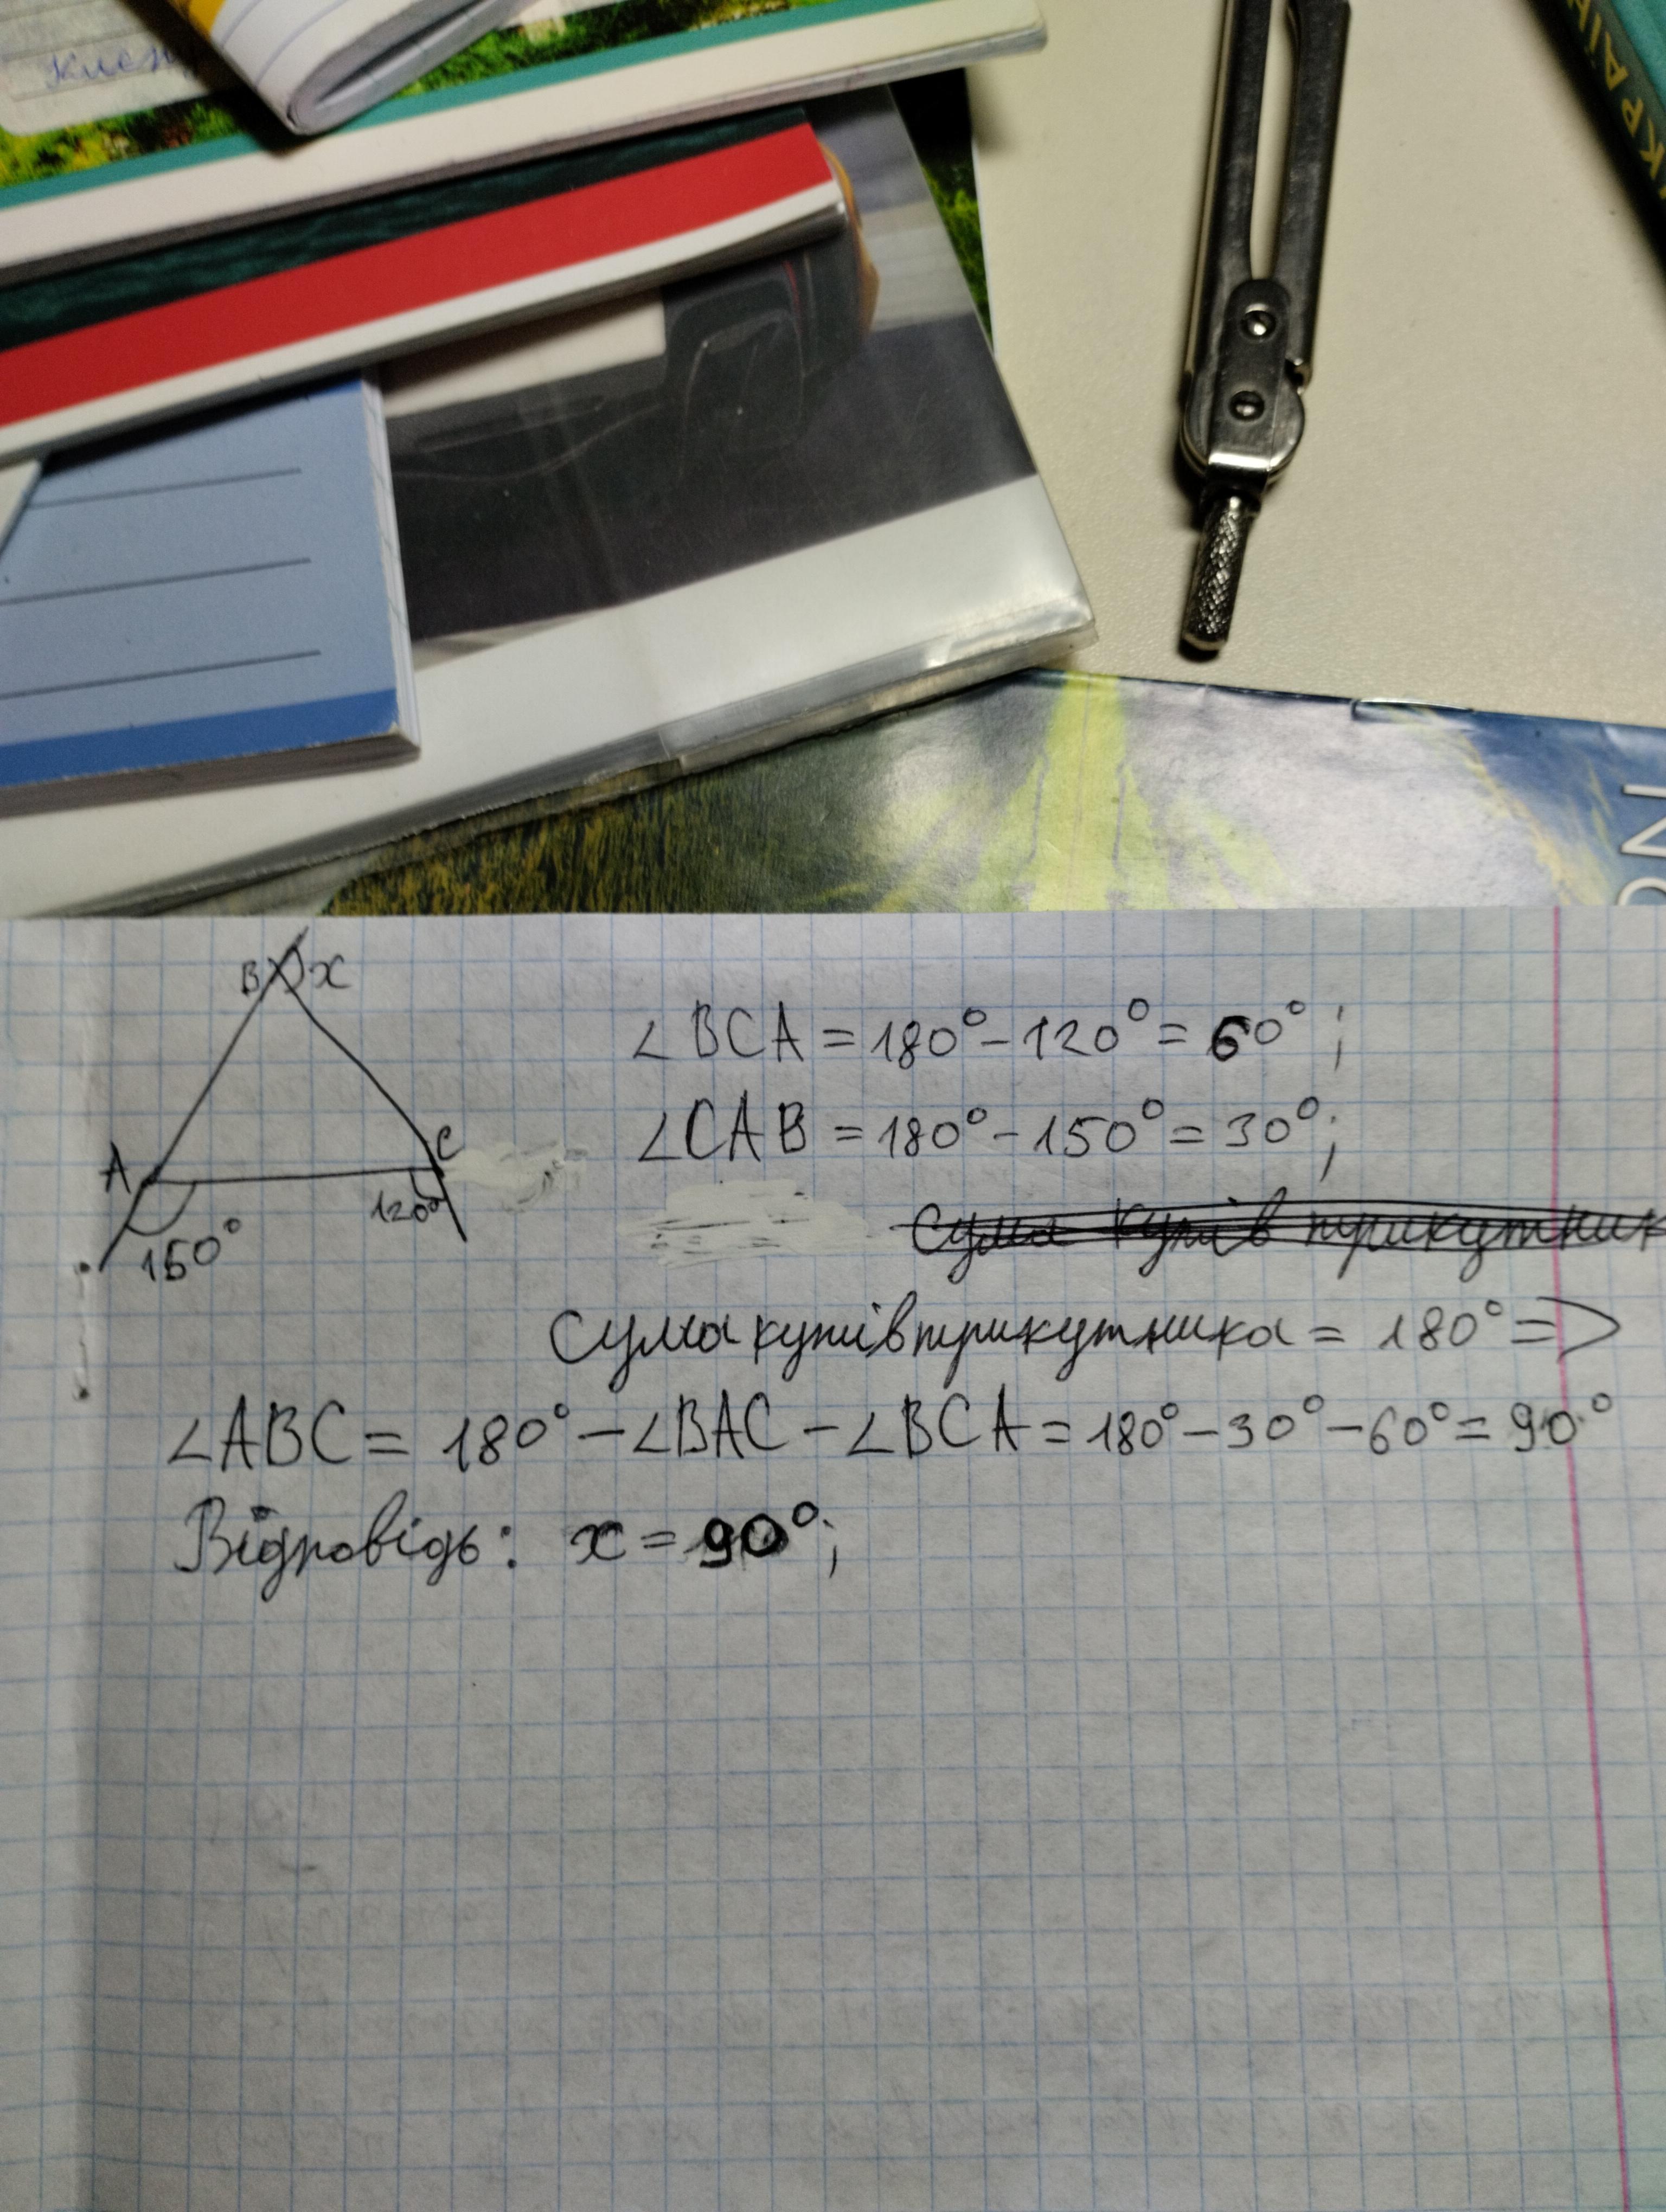 УКРАЇН
ON
B x
A
C
120°
150°
∠BCA = 180° - 120° = 60°;
∠CAB = 180° - 150° = 30°;
Сума кутів трикутник
Сума кутів трикутника = 180° =>
∠ABC = 180° - ∠BAC - ∠BCA = 180° - 30° - 60° = 90°
Відповідь: x = 90°;